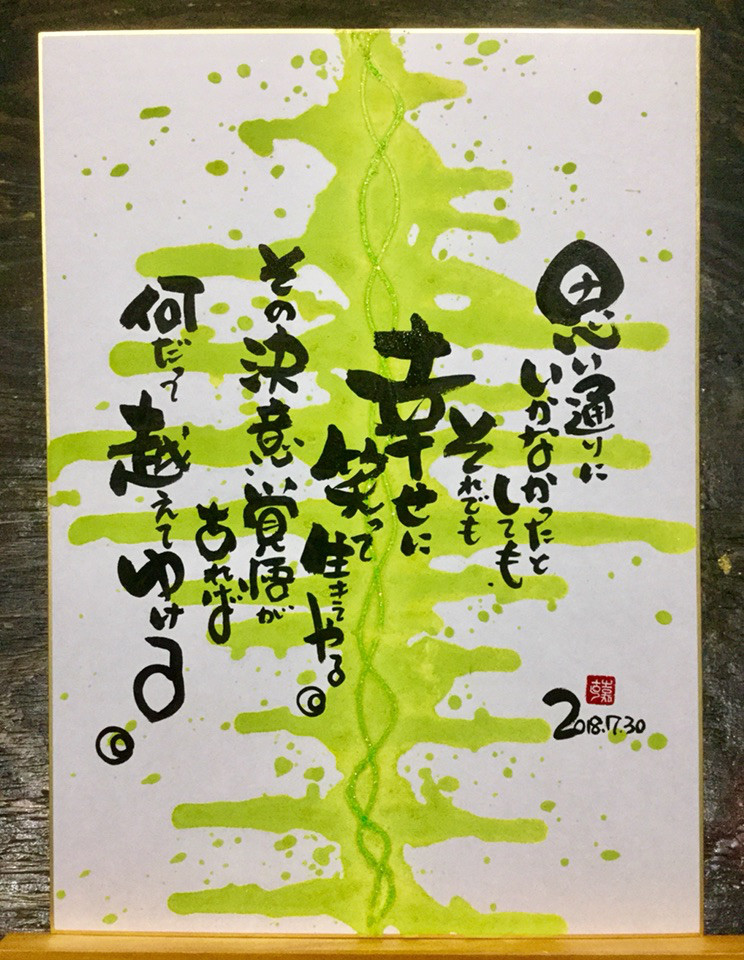 思い通りに
いかなかったと
しても
それでも
幸せに
笑って
生きてやる。
その決意、覚悟が
あれば
何だって
越えて
ゆける。
2018.7.30